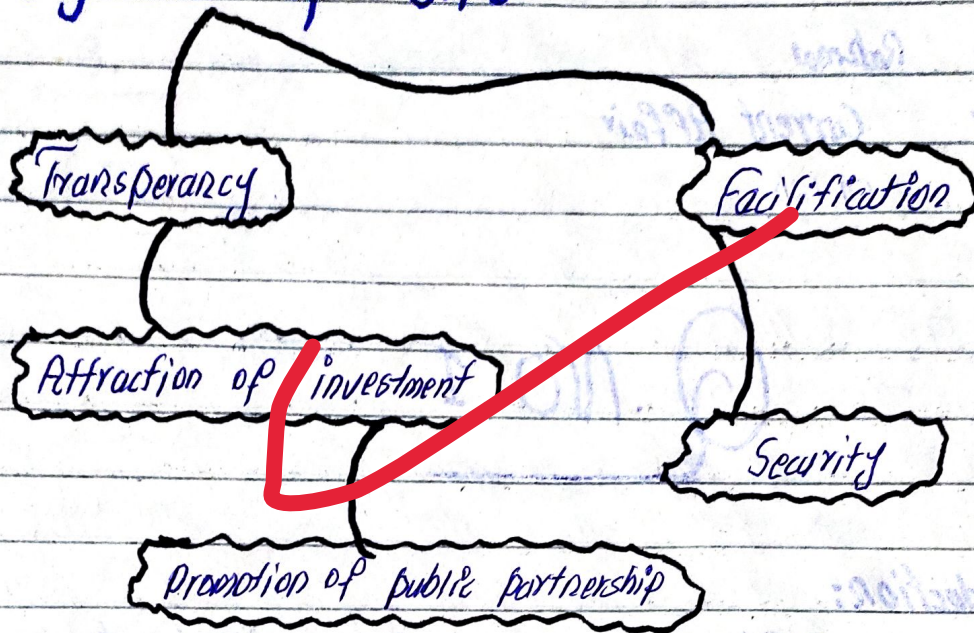 Transperancy
Facilification
Attraction of investment
Security
Promotion of public partnership